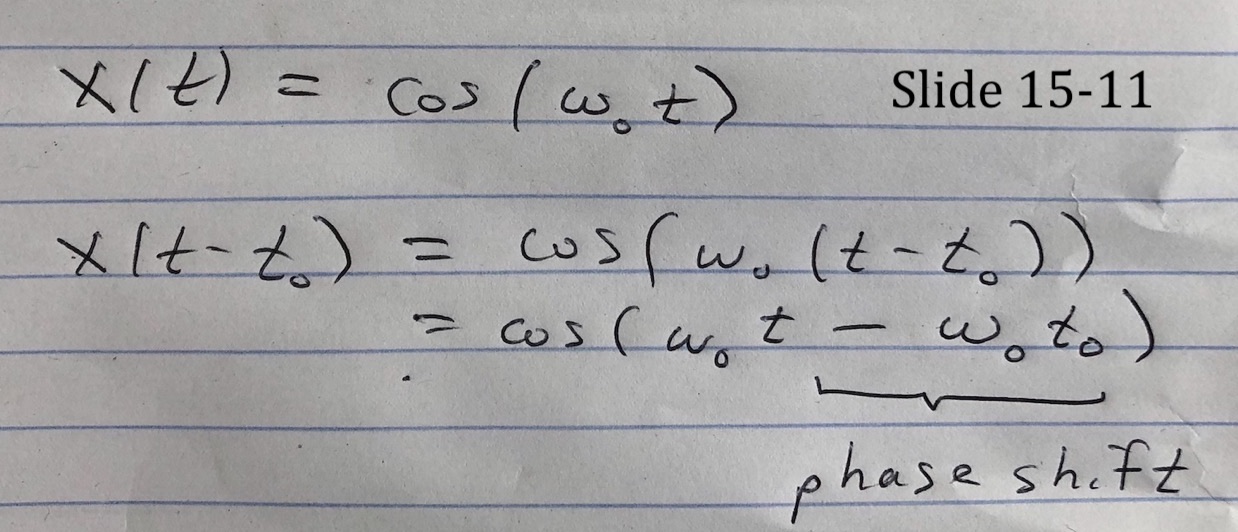 x(t) = cos(ω₀t) Slide 15-11
x(t-t₀) = cos(ω₀(t-t₀))
= cos(ω₀t - ω₀t₀)
phase shift